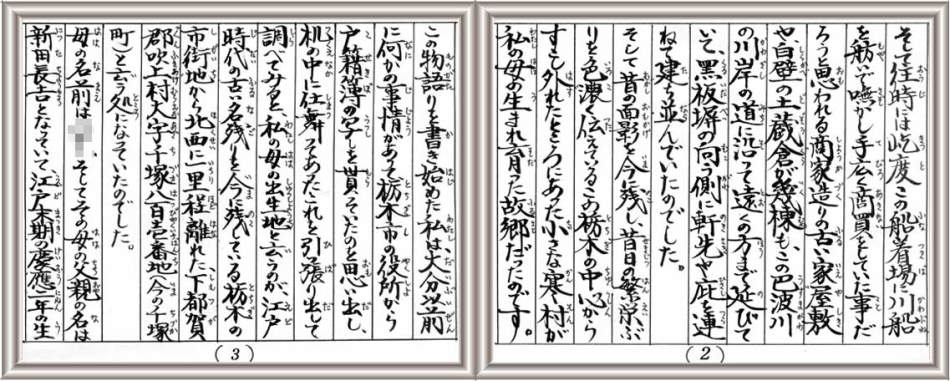 そして往時には屹度この船着場に川船
を舫いで嘸かし手広く商買をしていた事だ
ろうと思われる商家造りの古い家屋敷
や白壁の土蔵倉が幾棟も、この巴波川
の川岸の道に沿って遠くの方まで延びて
いて、黒板塀の向う側に軒先や庇を連
ねて建ち並んでいたのでした。
そして昔の面影を今に残し、昔日の繁栄ぶ
りを色濃く伝えているこの栃木の中心から
すこし外れたところにあった小さな寒村が
私の母の生まれ育った故郷だったのです。
(2)
この物語りを書き始めた私は大分以前
に何かの事情があって栃木市の役所から
戸籍簿の写しを貰っていたのを思い出し、
机の中に仕舞ってあったこれを引っ張り出して
調べてみると、私の母の出生地と云うのが、江戸
時代の古い名残りを今に残している栃木の
市街地から北西に二里程離れた下都賀
郡吹上村大字千塚八百壱番地、今の千塚
町と云う処になっていたのでした。
母の名前は、そしてその母の父親の名は
新田長吉となっていて、江戸末期の慶應二年の生
(3)